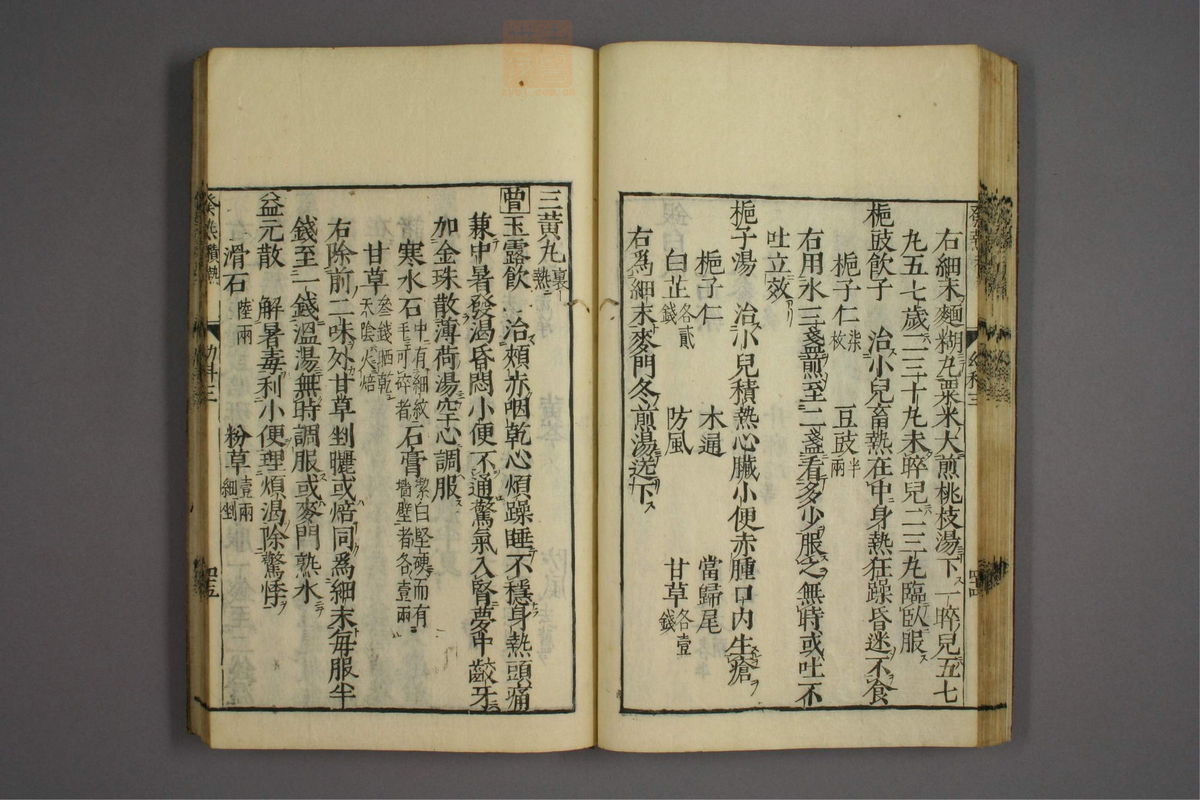 右細末麵糊丸粟米大煎桃枝湯下一晬兒五七
九五七歲二三十九未晬兒二三九臨臥服
梔豉飲子 治小兒畜熱在中身熱狂躁昏迷不食
梔子仁柒枚 豆豉半兩
右用水三盞煎至二盞看多少服之無時或吐不
吐立效
梔子湯 治小兒積熱心臟小便赤腫口内生瘡
梔子仁 木通 當歸尾
白芷各貳錢 防風 甘草各壹錢
右爲細末麥門冬煎湯送下
三黃丸裏熱
曾玉露飲 治頰赤咽乾心煩躁睡不穩身熱頭痛
兼中暑發渴昏悶小便不通驚氣入腎夢中齩牙
加金珠散薄荷湯空心調服
寒水石中有細紋手可碎者 石膏潔白堅硬而有墻壁者各壹兩
甘草叁錢
右除前二味外甘草剉曬或焙同爲細末每服半
錢至一錢溫湯無時調服或麥門熟水
益元散 解暑毒利小便理煩渴除驚悸
滑石陸兩 粉草壹兩細剉
幼科三